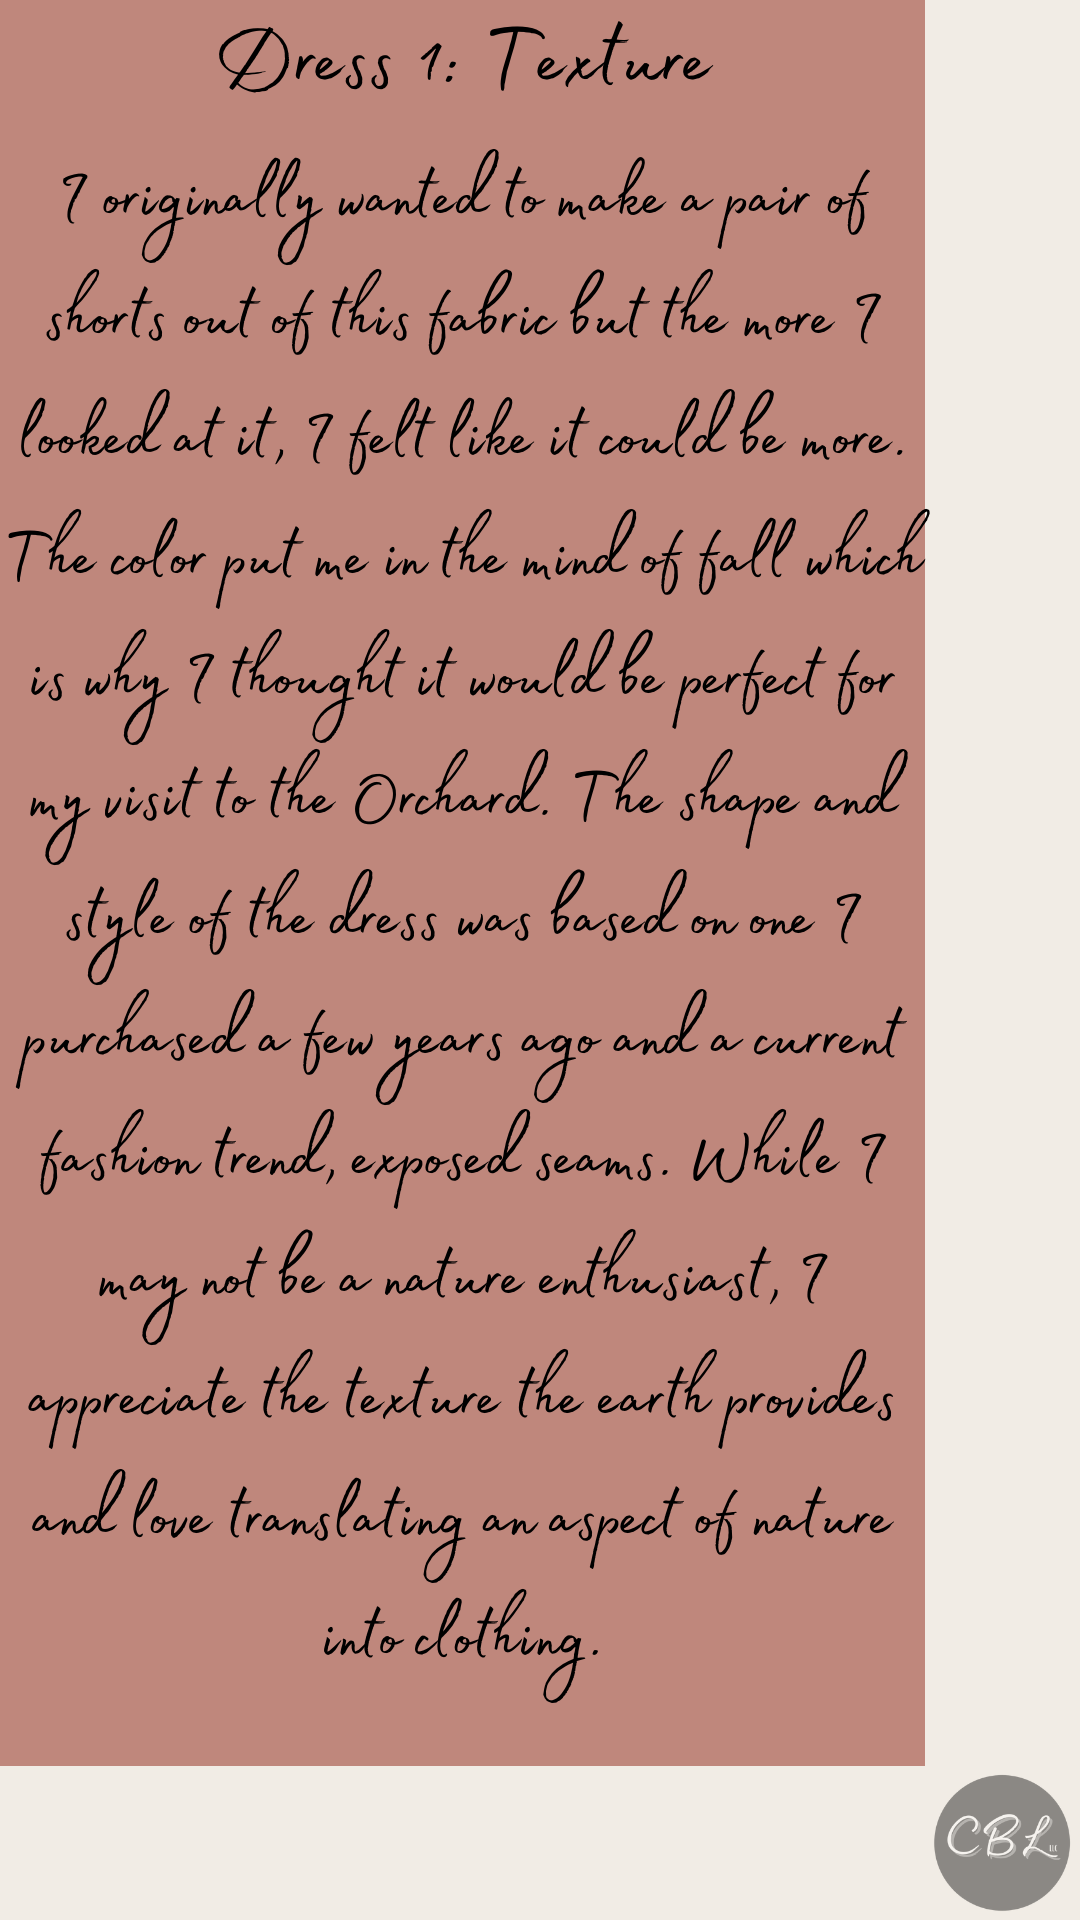 Dress 1: Texture
I originally wanted to make a pair of
shorts out of this fabric but the more I
looked at it, I felt like it could be more.
The color put me in the mind of fall which
is why I thought it would be perfect for
my visit to the Orchard. The shape and
style of the dress was based on one I
purchased a few years ago and a current
fashion trend, exposed seams. While I
may not be a nature enthusiast, I
appreciate the texture the earth provides
and love translating an aspect of nature
into clothing.
CBL LLC